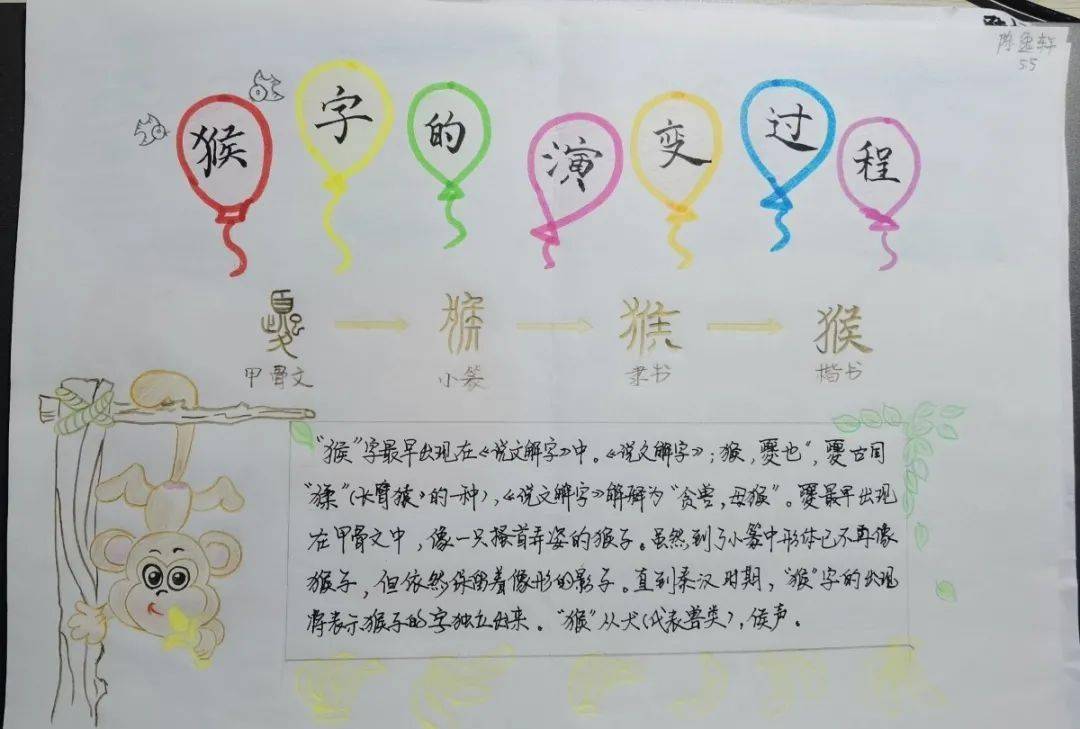 陈逸轩
55
猴字的演变过程
甲骨文 小篆 隶书 楷书
"猴"字最早出现在《说文解字》中。《说文解字》:猴,夒也",夒古同
"猱"(长臂猿的一种),《说文解字》解释为"贪兽,母猴"。夒最早出现
在甲骨文中,像一只搔首弄姿的猴子。虽然到了小篆中形体已不再像
猴子,但依然保留着像形的影子。直到秦汉时期,"猴"字的出现
将表示猴子的字独立出来。"猴"从犬(代表兽类),侯声。